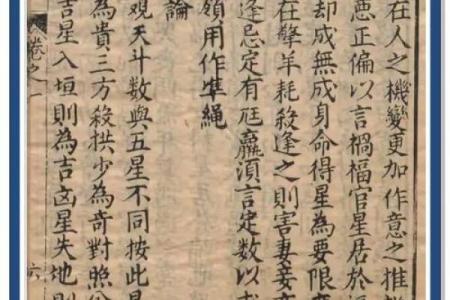 在人之機變更加作意之推
惡正偏以言禍福官星居於
却成無成身命得星為要限
在擎羊耗殺逢之則害妻妾
逢忌定有尫羸須言定數以求
領用作準繩
論
观天斗数與五星不同按此星
為貴三方殺拱少為奇對照分
吉星入垣則為吉凶星失地則
卷之一
六